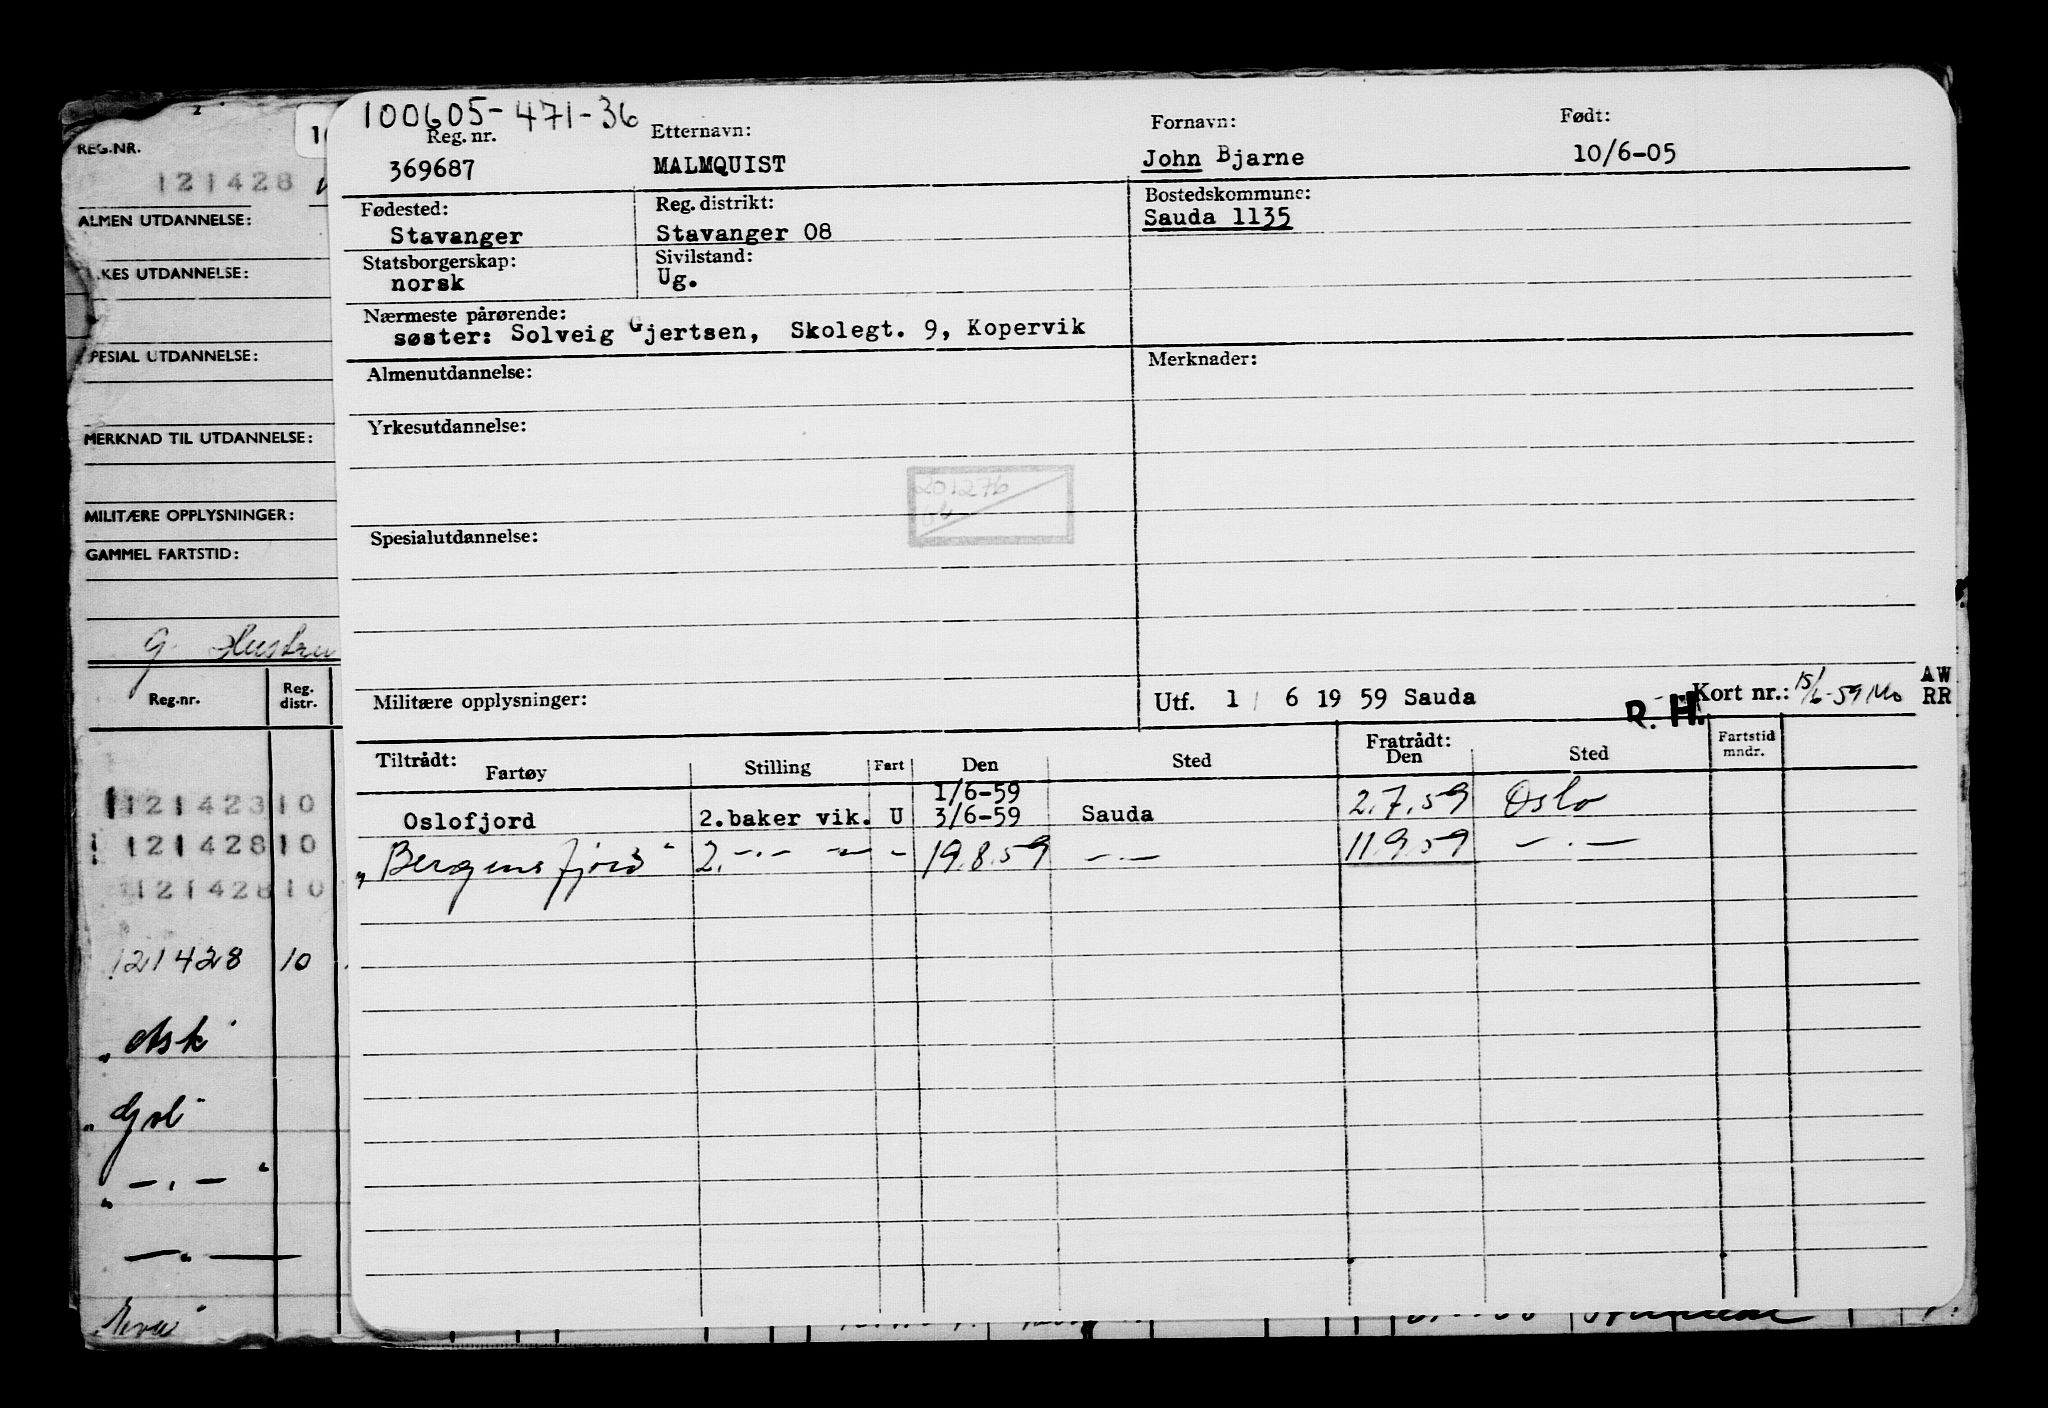 100605-471-36
Reg. nr. Etternavn: Fornavn: Født:
369687 MALMQUIST John Bjarne 10/6-05
Fødested: Reg. distrikt: Bostedskommune:
Stavanger Stavanger 08 Sauda 1135
Statsborgerskap: Sivilstand:
norsk Ug.
Nærmeste pårørende:
søster: Solveig Gjertsen, Skolegt. 9, Kopervik
Almenutdannelse: Merknader:
Yrkesutdannelse:
201276
Spesialutdannelse:
Militære opplysninger: Utf. 1/6 19 59 Sauda R. H. Kort nr.: 15/6-59 AW
RR
Tiltrådt: Fratrådt: Fartstid
Fartøy Stilling Fart Den Sted Den Sted mndr.
1/6-59
Oslofjord 2.baker vik. U 3/6-59 Sauda 2.7.59 Oslo
"Bergensfjord" 2. -"- -"- - 19.8.59 -"- 11.9.59 -"-
REG.NR.
121428
ALMEN UTDANNELSE:
RKES UTDANNELSE:
SPESIAL UTDANNELSE:
MERKNAD TIL UTDANNELSE:
MILITÆRE OPPLYSNINGER:
GAMMEL FARTSTID:
g. Hustru
Reg.nr. Reg. distr.
121423 10
121428 10
121428 10
121428 10
"Ask"
"Gol"
"-.-"
-"-